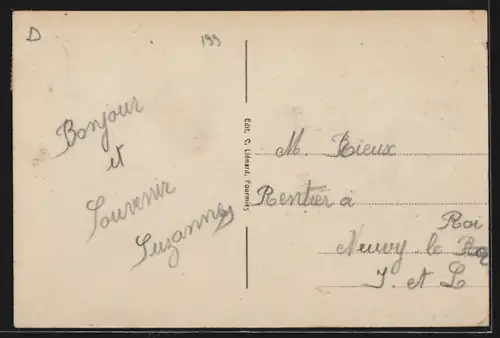 D
199
Bonjour
et
Souvenir
Suzanne
Edit. C. Liénard, Fourmies
M. Rieux
Rentier à
Roi
Neuvy le
I. et L